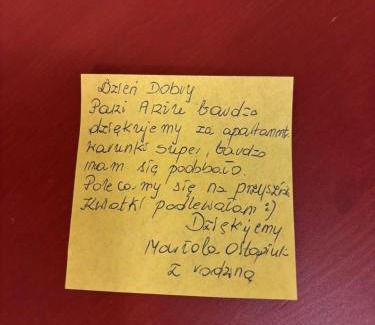 Dzień Dobry
Pani Aziu bardzo
dziękujemy za apartament.
warunki super, bardzo
nam się podobało.
Polecamy się na przyszłość
Kwiatki podlewałam :)
Dziękujemy
Mariola Ostapiuk
z rodziną